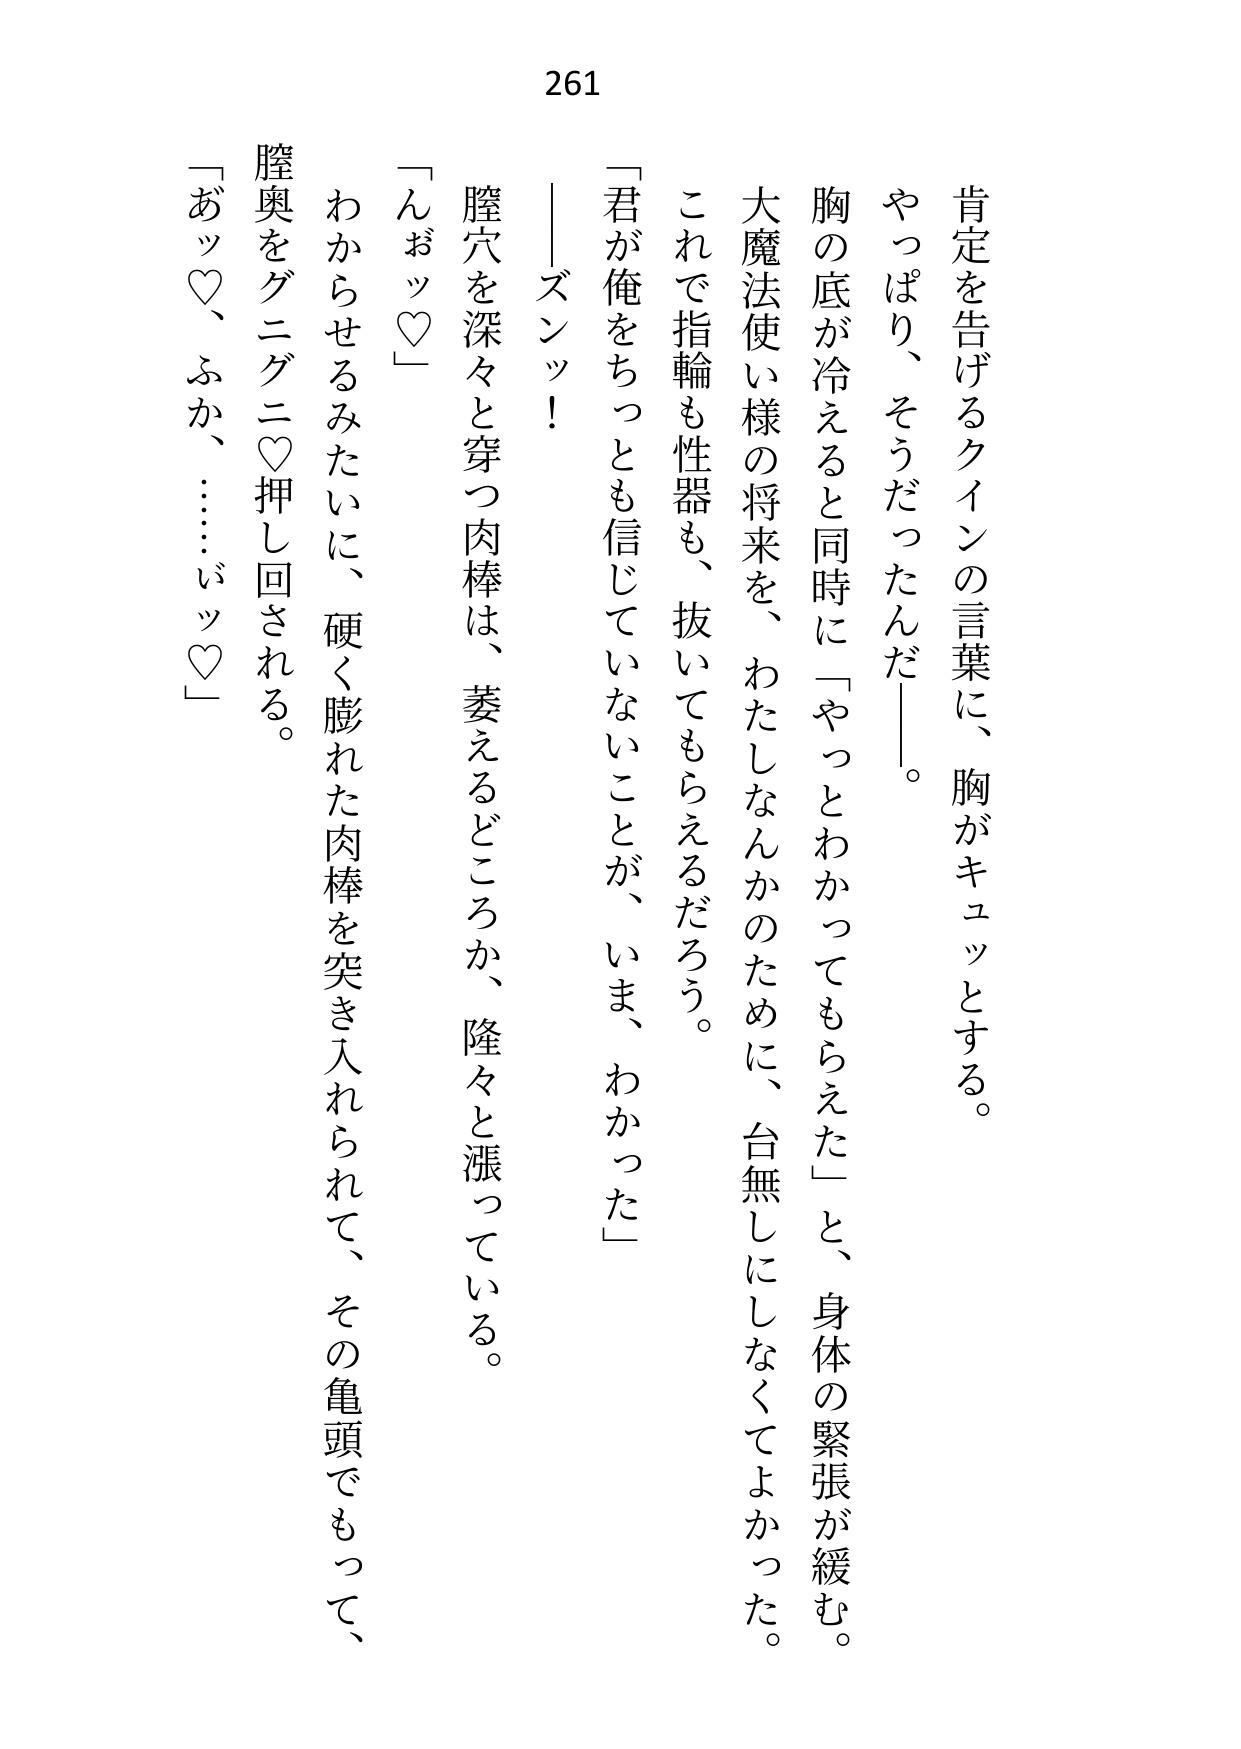 261
肯定を告げるクインの言葉に、胸がキュッとする。
やっぱり、そうだったんだ――。
胸の底が冷えると同時に「やっとわかってもらえた」と、身体の緊張が緩む。
大魔法使い様の将来を、わたしなんかのために、台無しにしなくてよかった。
これで指輪も性器も、抜いてもらえるだろう。
「君が俺をちっとも信じていないことが、いま、わかった」
――ズンッ！
膣穴を深々と穿つ肉棒は、萎えるどころか、隆々と漲っている。
「んぉ゙ッ♡」
わからせるみたいに、硬く膨れた肉棒を突き入れられて、その亀頭でもって、
膣奥をグニグニ♡押し回される。
「あ゙ッ♡、ふか、……ぃ゙ッ♡」